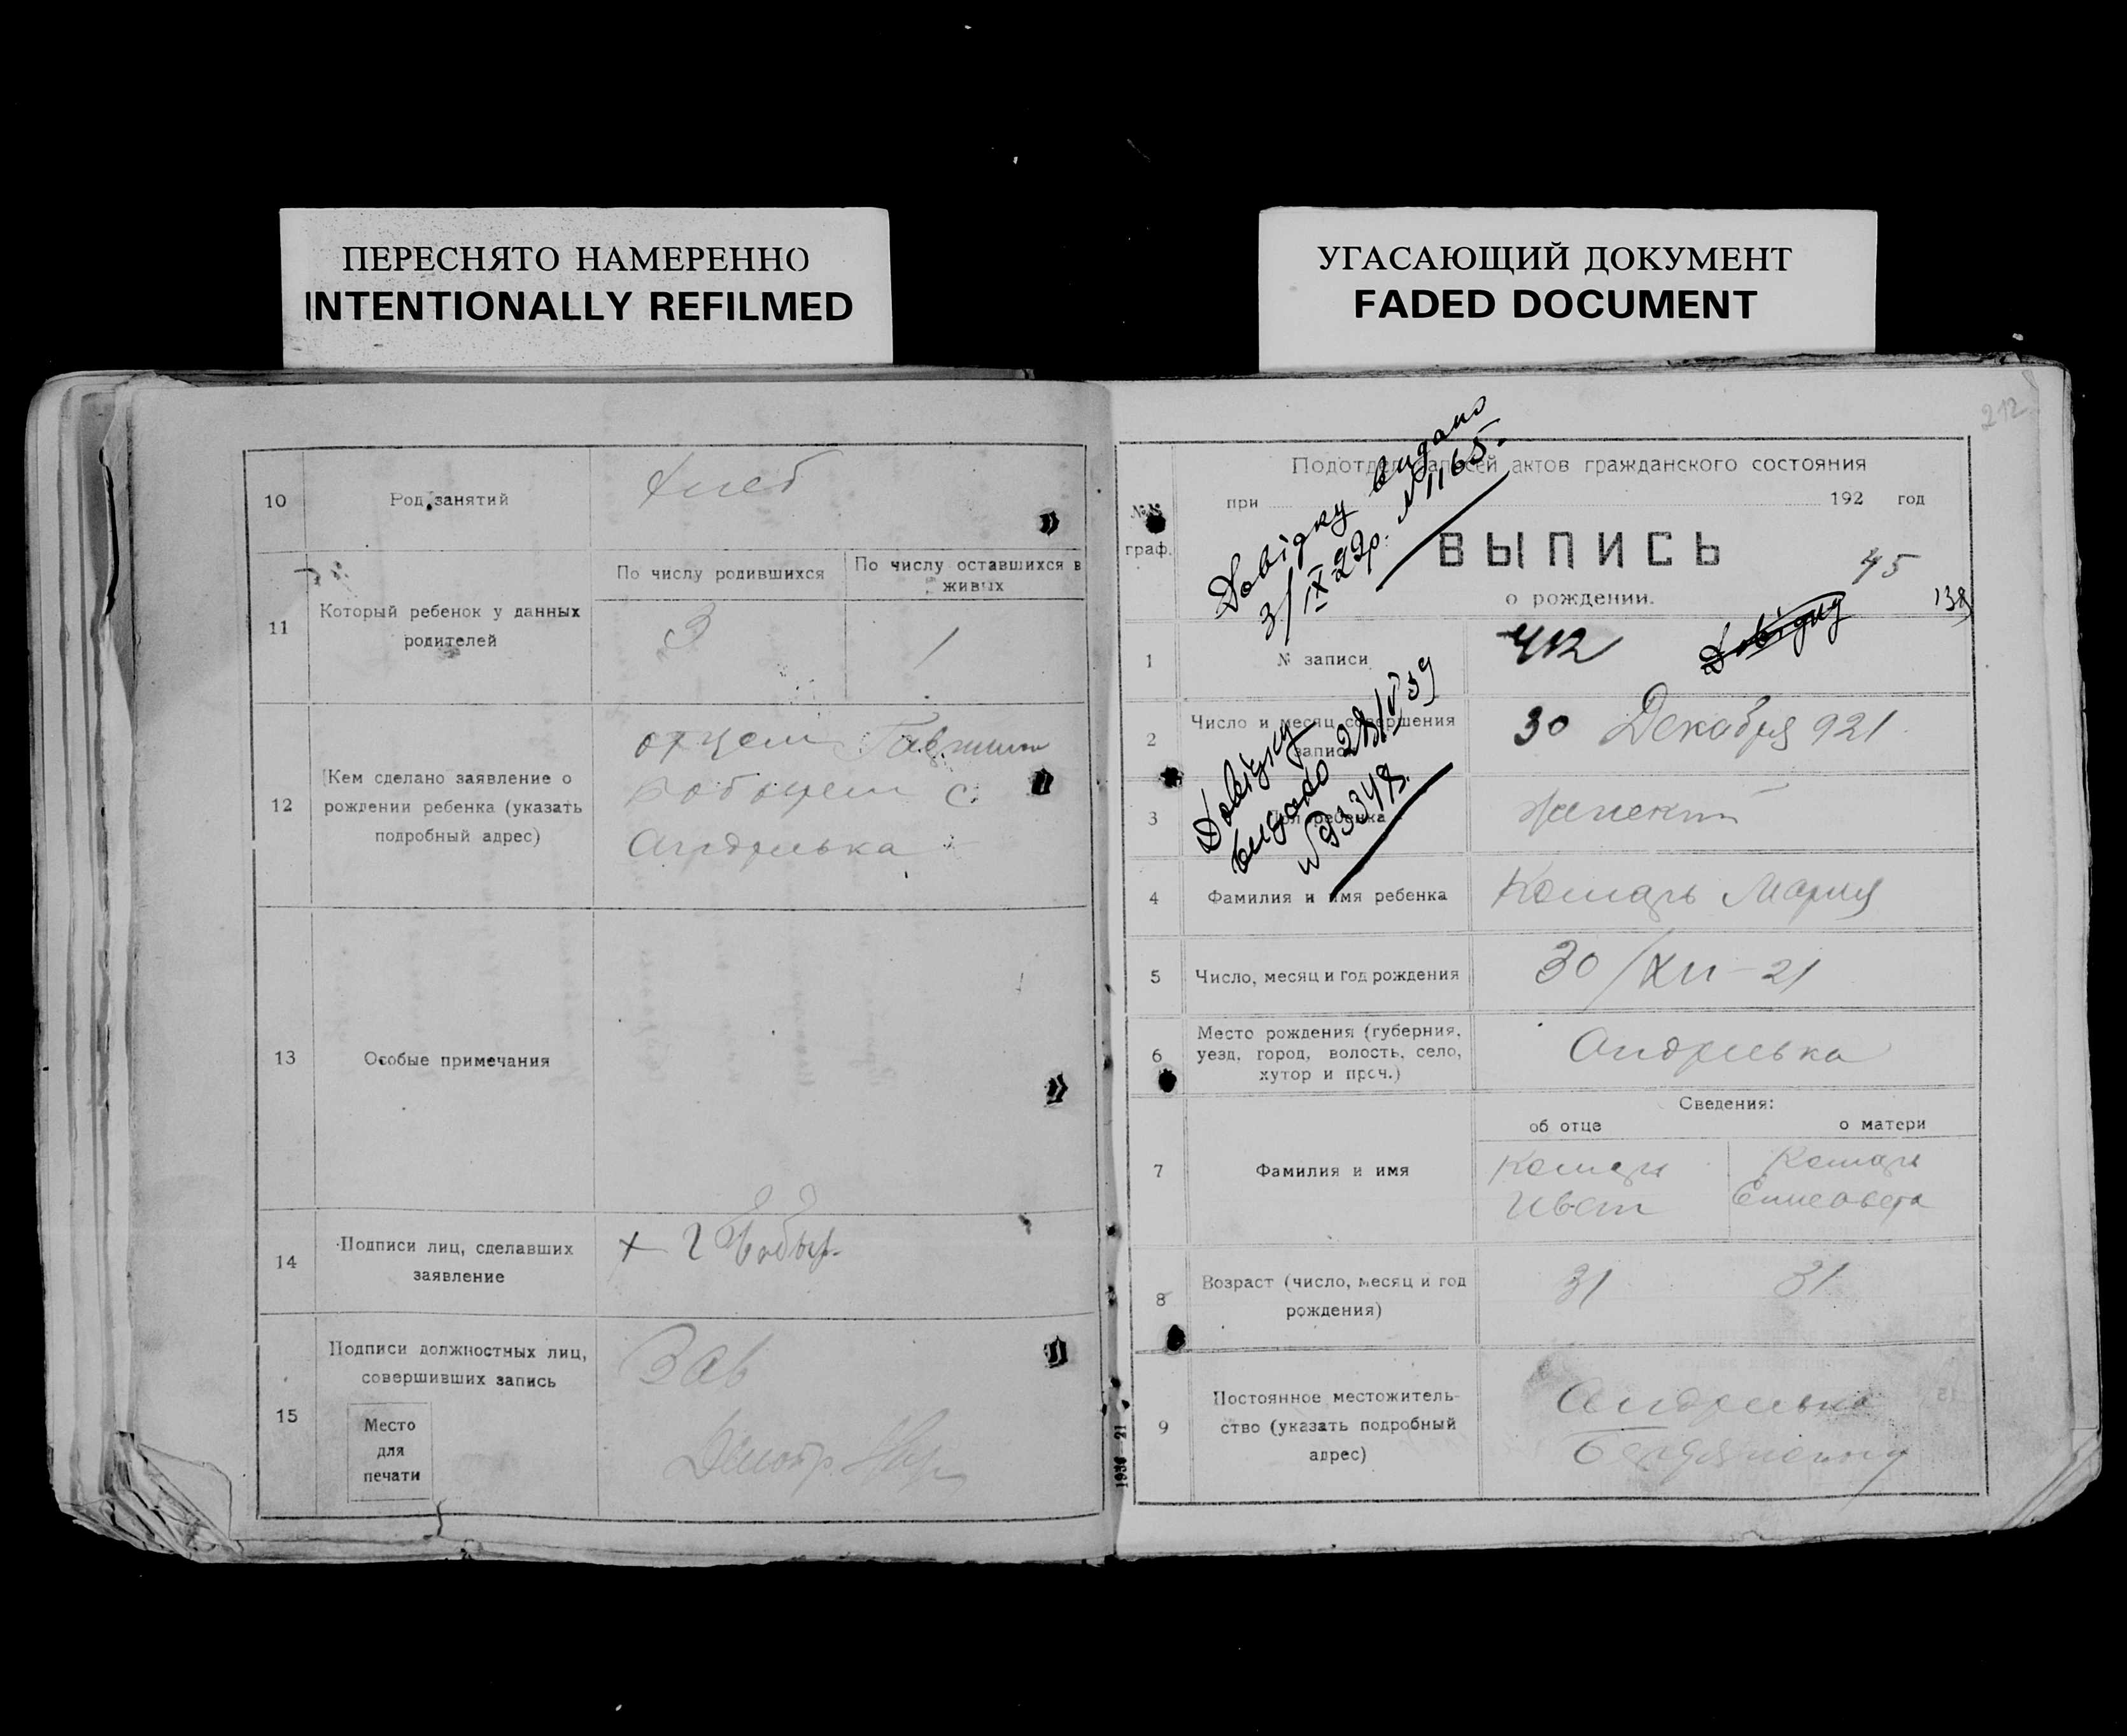 ПЕРЕСНЯТО НАМЕРЕННО
INTENTIONALLY REFILMED
УГАСАЮЩИЙ ДОКУМЕНТ
FADED DOCUMENT
10
Род занятий
11
Который ребенок у данных
родителей
По числу родившихся
По числу оставшихся в
живых
3
1
12
Кем сделано заявление о
рождении ребенка (указать
подробный адрес)
отцем
с.
Андреевка
13
Особые примечания
14
Подписи лиц, сделавших
заявление
+
15
Подписи должностных лиц,
совершивших запись
Место
для
печати
Зав
212
Подотдел записей актов гражданского состояния
при
192 год
№№
граф.
ВЫПИСЬ
о рождении.
45
138
Довідку видано
3/IX 22р. №1165.
1
№ записи
412
Довідку
2
Число и месяц совершения
записи
30 Декабря 921
Довідку
видано 28/V 39
№ 93348.
3
Пол ребенка
женский
4
Фамилия и имя ребенка
Комарь Мария
5
Число, месяц и год рождения
30/XII-21
6
Место рождения (губерния,
уезд, город, волость, село,
хутор и проч.)
Андреевка
Сведения:
об отце
о матери
7
Фамилия и имя
Комарь
Иван
Комарь
Елисавета
8
Возраст (число, месяц и год
рождения)
31
31
9
Постоянное местожитель-
ство (указать подробный
адрес)
Андреевка
1936—21